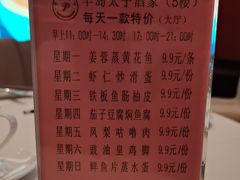 半岛太子酒家（5楼）
每天一款特价（大厅）
早上11:00时-14:30时 17:00时-21:00时
星期一 姜蓉蒸黄花鱼 9.9元/条
星期二 虾仁炒滑蛋 9.9元/份
星期三 铁板鱼肠柚皮 9.9元/份
星期四 茄子豆腐焖鱼腐 9.9元/份
星期五 凤梨咕噜肉 9.9元/份
星期六 豉油皇鸡脚 9.9元/份
星期日 鲜鱼片蒸水蛋 9.9元/份